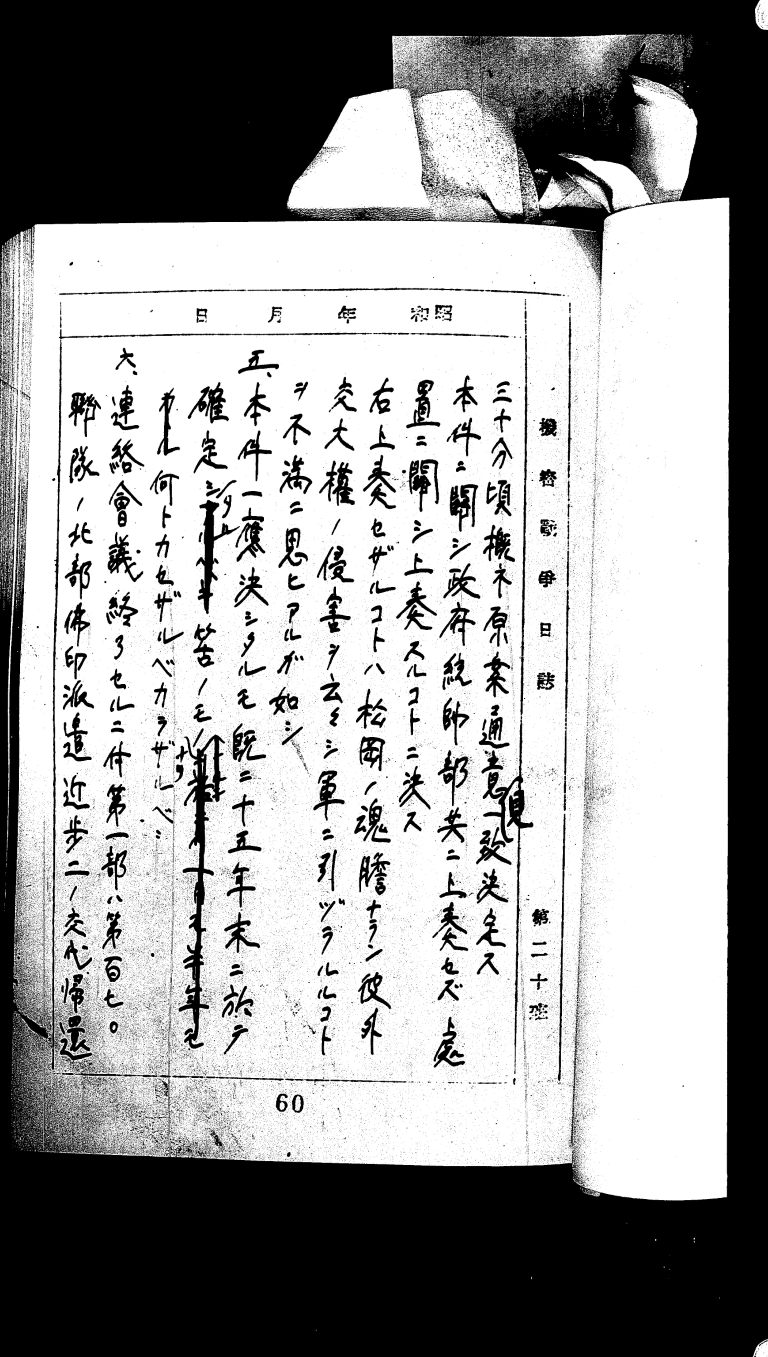 機密戰爭日誌
第二十班
昭和 年 月 日
三十分頃概ネ原案ニ通意見一致決定ス
本件ニ関シ政府統帥部共ニ上奏セズ處
置ニ関シ上奏スルコトニ決ス
右上奏セザルコトハ松岡ノ魂膽ナラン彼外
交大權ノ侵害ヲ云々シ軍ニ引ヅラルルコト
ヲ不満ニ思ヒアルガ如シ
五、本件一應決シタルモ既ニ十五年末ニ於テ
確定シタル筈ノモノナリ
何トカセザルベカラザルベシ
六、連絡會議終了セルニ付第一部ハ第百七〇
聯隊ノ北部佛印派遣近歩二ノ交代歸還
60